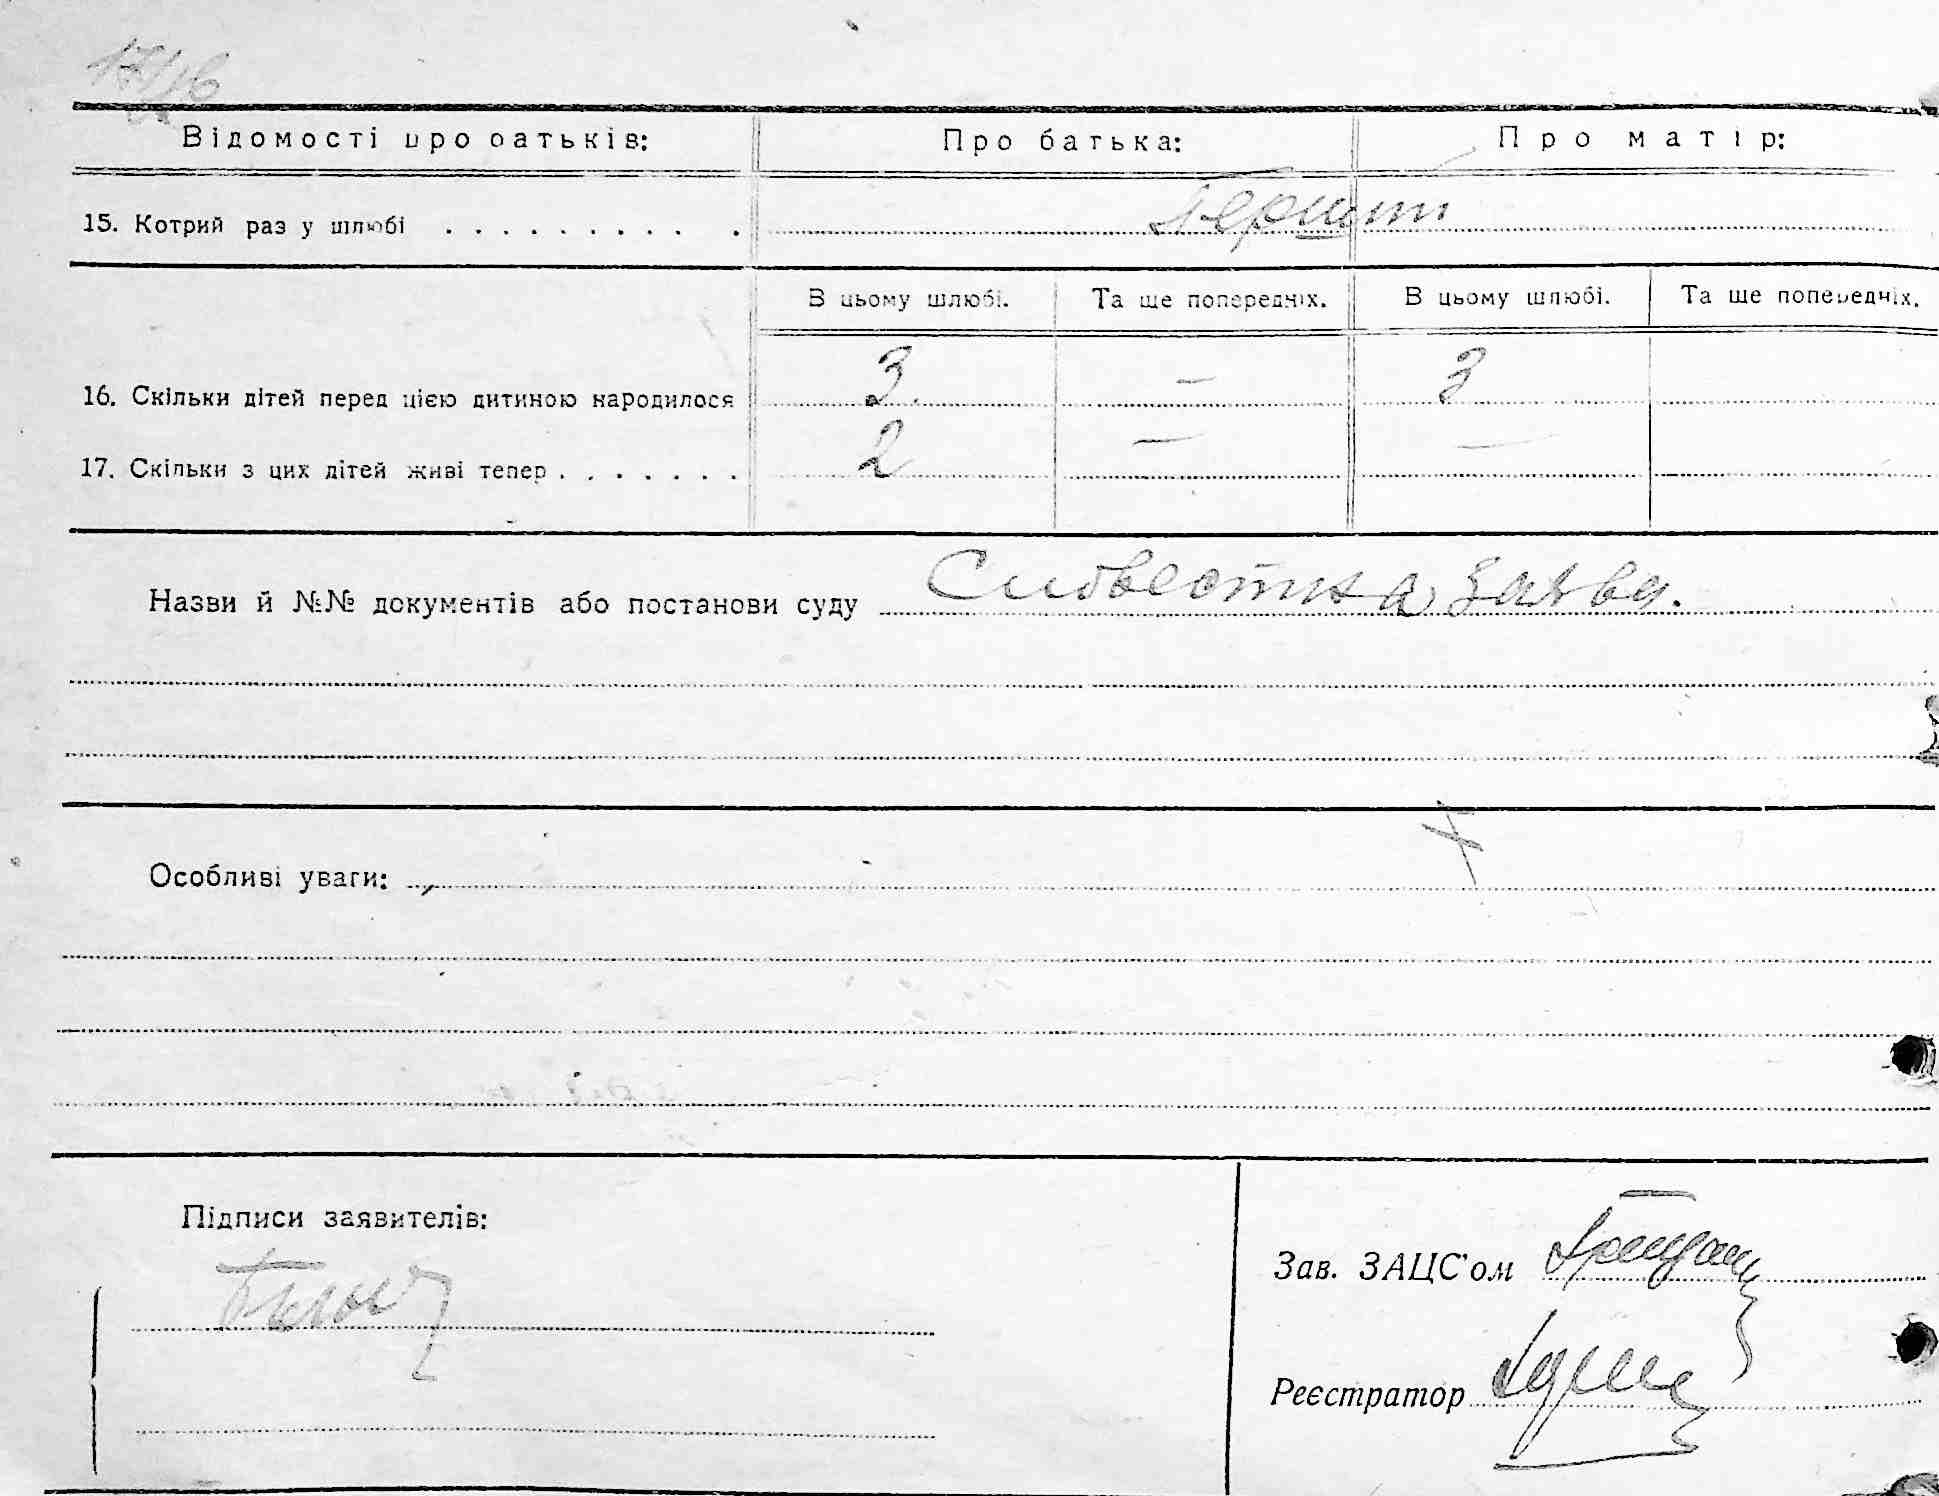 Відомості про батьків: Про батька: Про матір:
15. Котрий раз у шлюбі . . . . . . . . . . Перший
В цьому шлюбі. Та ще попередніх. В цьому шлюбі. Та ще попередніх.
16. Скільки дітей перед цією дитиною народилося 3 — 3
17. Скільки з цих дітей живі тепер . . . . . . . 2 — —
Назви й №№ документів або постанови суду заява.
Особливі уваги:
Підписи заявителів:
Зав. ЗАЦС'ом
Реєстратор